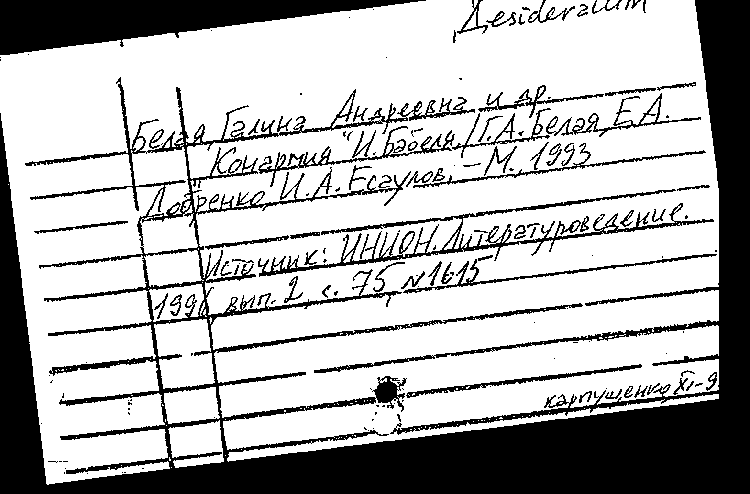 Desideratum
Белая, Галина Андреевна и др.
"Конармия" И. Бабеля / Г.А. Белая, Е.А.
Добренко, И.А. Есаулов, – М., 1993
Источник: ИНИОН. Литературоведение.
1996, вып. 2, с. 75, N1615
карпущенко, XI-9